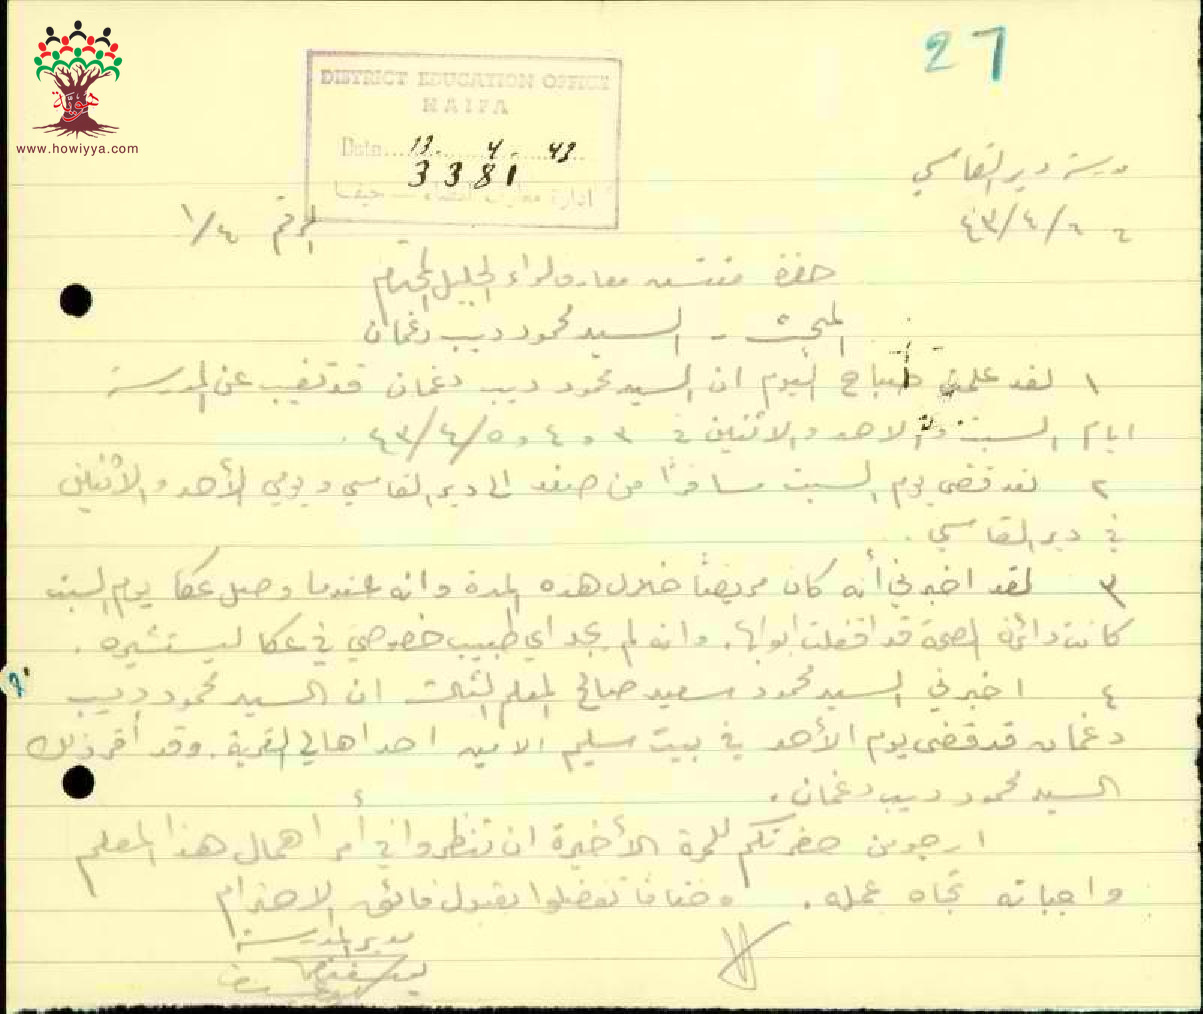 27
هوية
www.howiyya.com
DISTRICT EDUCATION OFFICE
HAIFA
Date... 13. 4. 43
3381
ادارة معارف القضاء — حيفا
مدرسة دير القاسي
٤٣/٤/٦
الرقم ١/٤
حضرة مفتش معارف لواء الجليل المحترم
المبحث - السيد محمود ديب دغمان
١ لقد علمت صباح اليوم ان السيد محمود ديب دغمان قد تغيب عن المدرسة
ايام السبت والاحد والاثنين في ٣ و ٤ و ٤٣/٤/٥ .
٢ لقد قضى يوم السبت مسافرًا من صفد الى دير القاسي ويومي الأحد والاثنين
في دير القاسي .
٣ لقد اخبرني أنه كان مريضًا خلال هذه المدة وانه عندما وصل عكا يوم السبت
كانت دائرة الصحة قد اقفلت ابوابها. وانه لم يجد اي طبيب خصوصي في عكا ليستشيره .
٤ اخبرني السيد محمود سعيد صالح المعلم الثالث ان السيد محمود ديب
دغمان قد قضى يوم الأحد في بيت سليم الامين احد اهالي القرية. وقد أقر ذلك
السيد محمود ديب دغمان .
ارجو من حضرتكم للمرة الأخيرة ان تنظروا في أمر اهمال هذا المعلم
واجباته تجاه عمله . وختامًا تفضلوا بقبول فائق الاحترام
مدير المدرسة